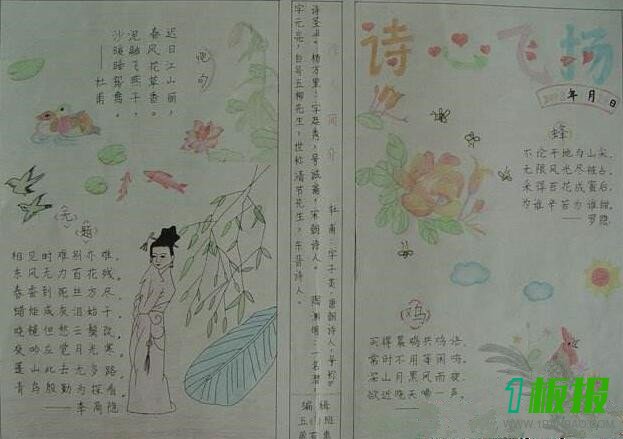 诗心飞扬
年 月 日
蜂
不论平地与山尖,
无限风光尽被占。
采得百花成蜜后,
为谁辛苦为谁甜。
——罗隐
鸡
买得晨鸡共鸡语,
常时不用等闲鸣。
深山月黑风雨夜,
欲近晓天啼一声。
杜甫:字子美,唐朝诗人,号称
诗圣。杨万里:字廷秀,号诚斋,宋朝诗人。陶渊明:一名潜,
字元亮,自号五柳先生,世称靖节先生,东晋诗人。
编辑
绝句
迟日江山丽,
春风花草香。
泥融飞燕子,
沙暖睡鸳鸯。
——杜甫
无题
相见时难别亦难,
东风无力百花残。
春蚕到死丝方尽,
蜡炬成灰泪始干。
晓镜但愁云鬓改,
夜吟应觉月光寒。
蓬山此去无多路,
青鸟殷勤为探看。
——李商隐
1板报